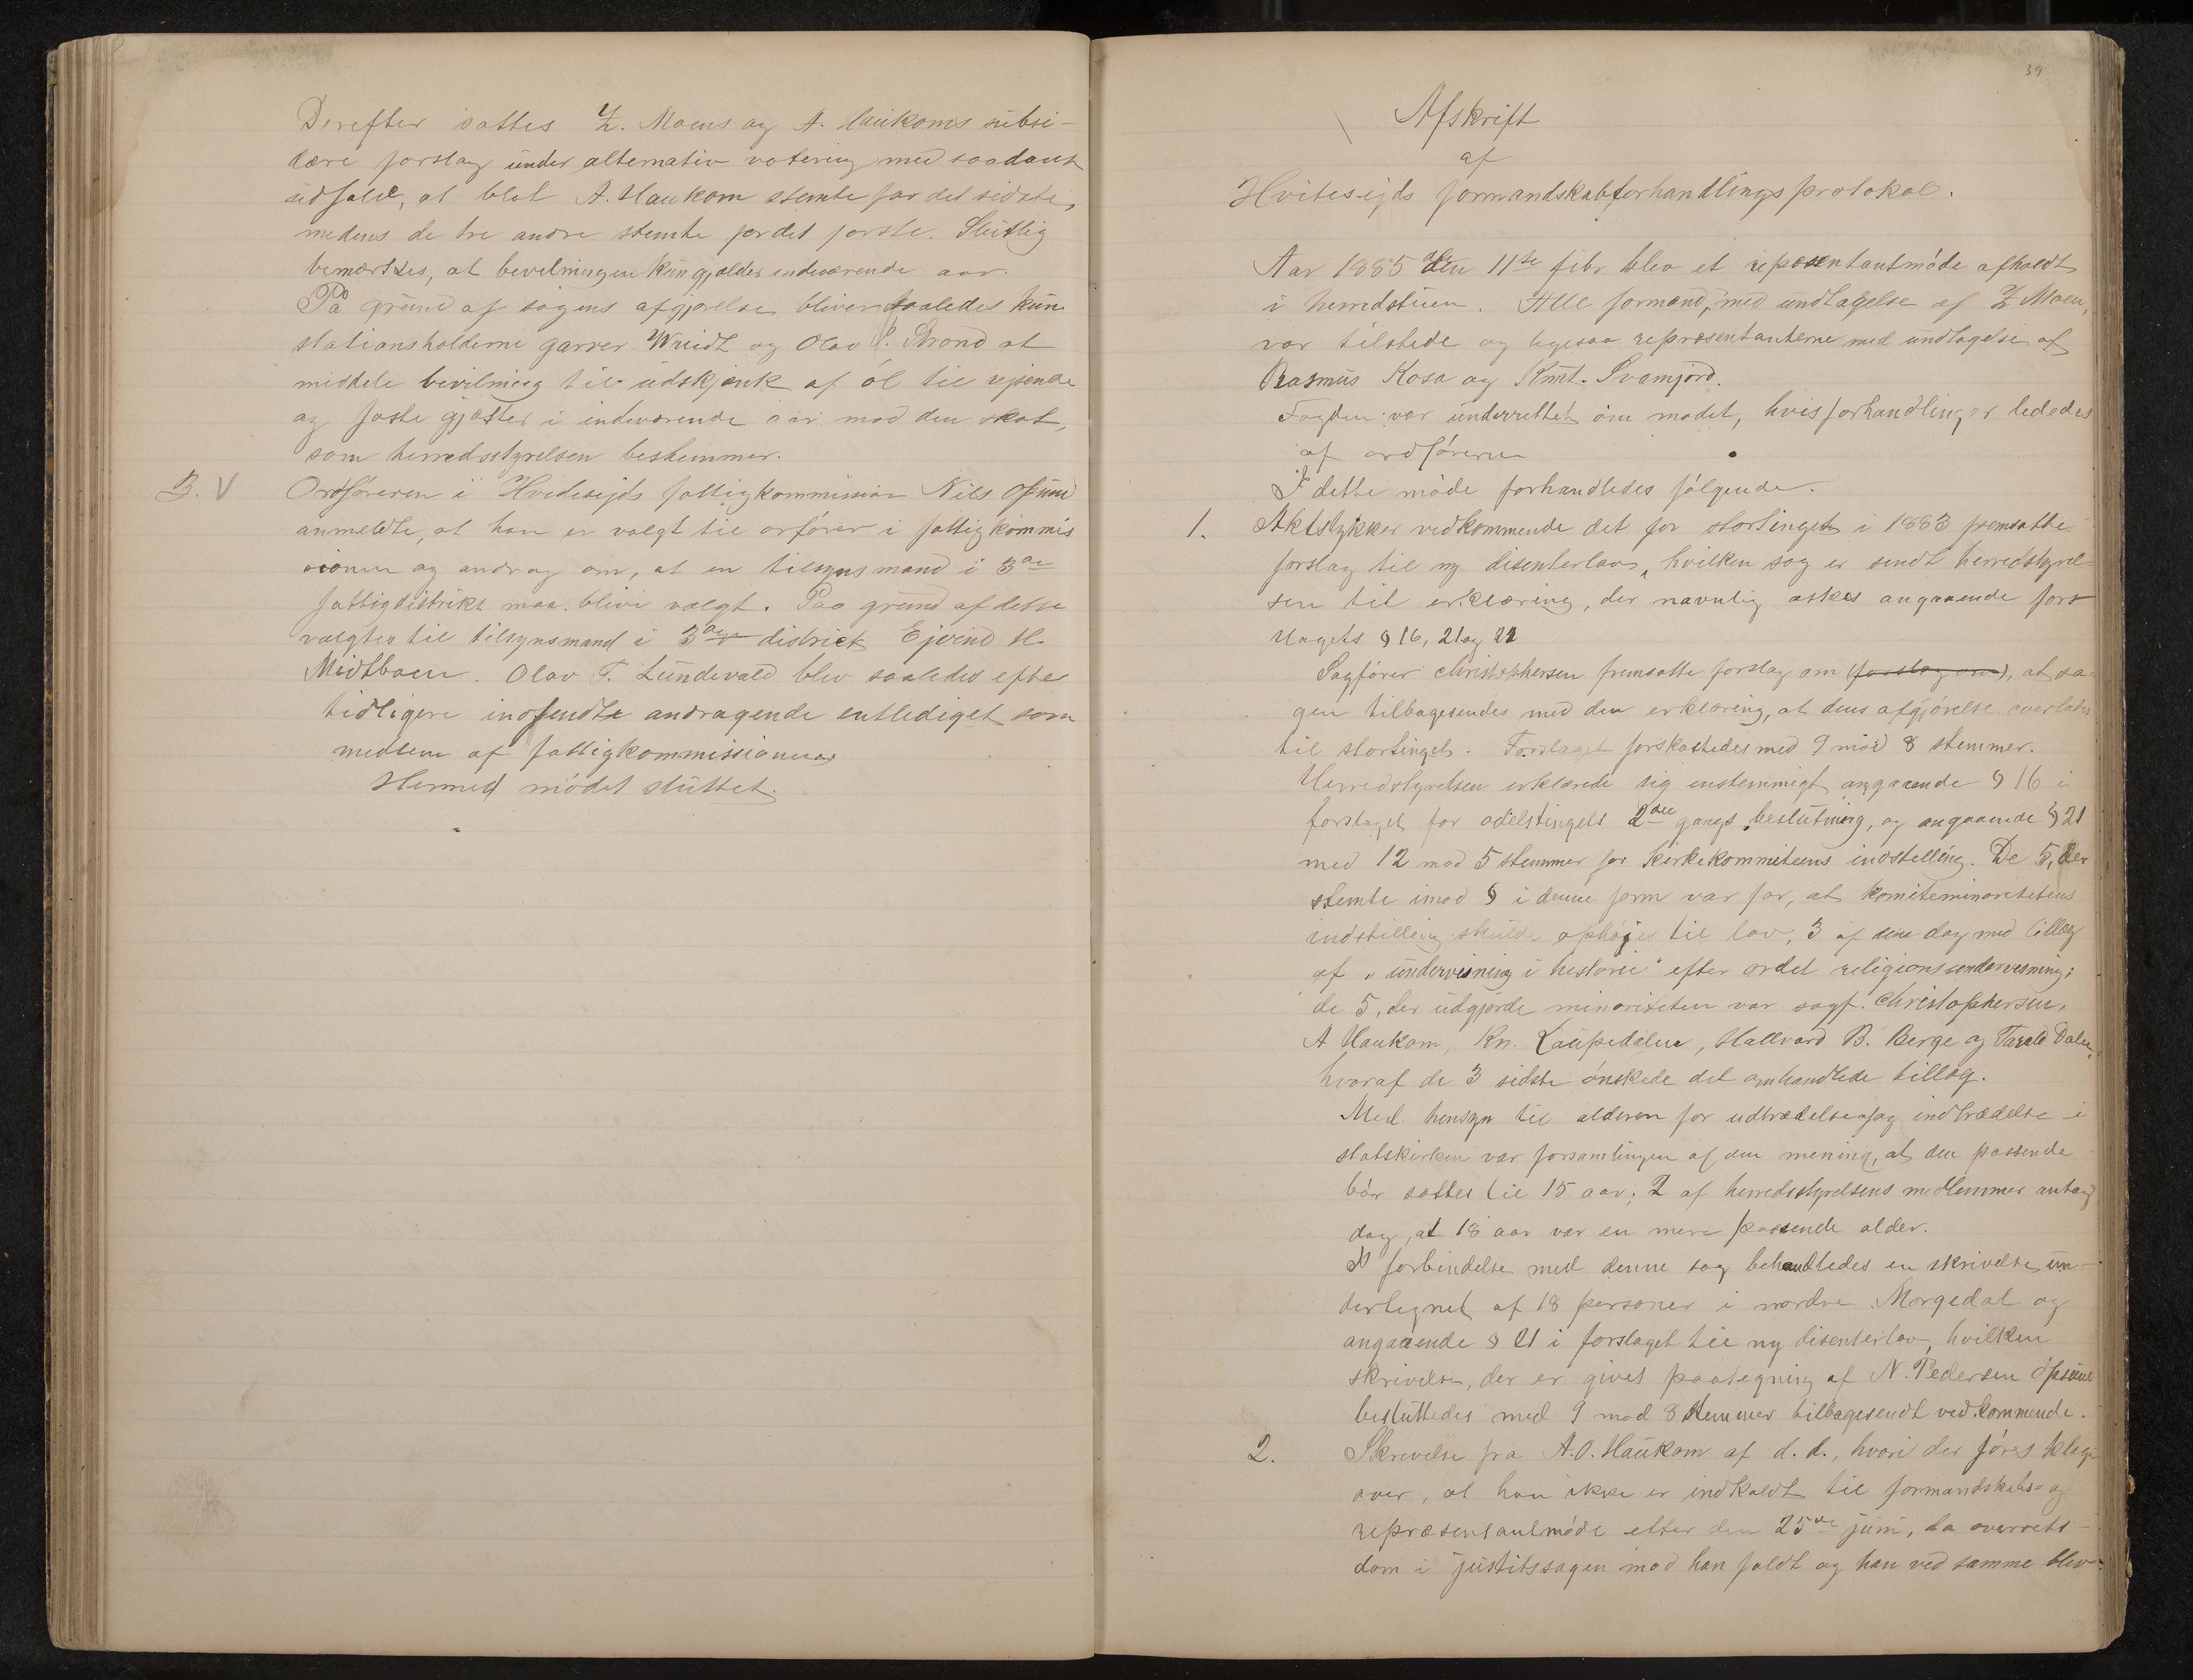 Derefter sattes Z. Moens og A. Haukoms subsi-
diære forslag under alternativ votering med saadant
udfald, at blot A. Haukom stemte for det sidste,
medens de tre andre stemte for det første. Sluttlig
bemærktes, at bevilningen kun gjælder indeværende aar.
På grund af sagens afgjørelse bliver saaledes kun
stationsholderne garver Wriedt og Olav S. Strond at
middele bevilning til udskjænk af øl til rejsende
og faste gjæster i indeværende aar mod den skat,
som herredsstyrelsen bestemmer.
3. V Ordføreren i Hvidesejds fattigkommission Nils Ofsund
anmeldte, at han er valgt til orfører i fattigkommis
sionen og androg om, at en tilsynsmand i 3die
fattigdistrikt maa blive valgt. Paa grund af dette
valgtes til tilsynsmand i 3die district Ejvind H.
Midtbøen. Olav T. Lundevald blev saaledes efter
tidligere indsendte andragende entlediget som
medlem af fattigkommissionen
Hermed mødet sluttet.
39
Afskrift
af
Hvitesejds formandskabforhandlingsprotokol.
Aar 1885 den 11te febr blev et repræsentantmøde afholdt
i herredstuen. Alle formænd, med undtagelse af Z Moen,
var tilstede og ligesaa repræsentanterne med undtagelse af
Rasmus Kosa og Knut. Svamjord.
Fogden var underrettet om mødet, hvis forhandlinger lededes
af ordføreren
I dette møde forhandledes følgende.
1. Aktstykker vedkommende det for stortinget i 1883 fremsatte
forslag til ny disenterlov, hvilken sag er sendt herredstyrel-
sen til erklæring, der navnlig æskes angaaende fors
slagets § 16, 21 og 22
Sagfører Christophersen fremsatte forslag om (forslag om), at sa-
gen tilbagesendes med den erklæring, at dens afgjørelse overlades
til stortinget. Forslaget forkastedes med 9 mod 8 stemmer.
Herredstyrelsen erklærede sig enstemmigt angaaende § 16 i
forslaget for odelstingets 2den gangs beslutning, og angaaende § 21
med 12 mod 5 stemmer for kirkekommiteens indstelling. De 5, der
stemte imod § i denne form var for, at komiteminoritetens
indstilling skulde ophøjes til lov, 3 af dem dog med tillæg
af „undervisning i historie" efter ordet religionsundervisning;
de 5, der udgjorde minoriteten var sagf. Christophersen,
A Haukom, Kn. Laupedalen, Hallvard B. Berge og Tarald Dalen,
hvoraf de 3 sidste ønskede det omhandlede tillæg.
Med hensyn til alderen for udtrædelse af og indtrædelse i
statskirken var forsamlingen af den mening, at den passende
bør sættes til 15 aar; 2 af herredsstyrelsens medlemmer antog
dog, at 18 aar var en mere passende alder.
I forbindelse med denne sag behandledes en skrivelse un-
dertegnet af 18 personer i nordre Morgedal og
angaaende § 21 i forslaget til ny disenterlov, hvilken
skrivelse, der er givet paategning af N. Pedersen Ofsund
besluttedes med 9 mod 8 stemmer tilbagesendt vedkommende.
2. Skrivelse fra A.O. Haukom af d. d., hvori der føres klage
over, at han ikke er indkaldt til formandskabs- og
repræsentantmøde efter den 25de juni, da overrets-
dom i justitssagen mod han faldt og han ved samme blev